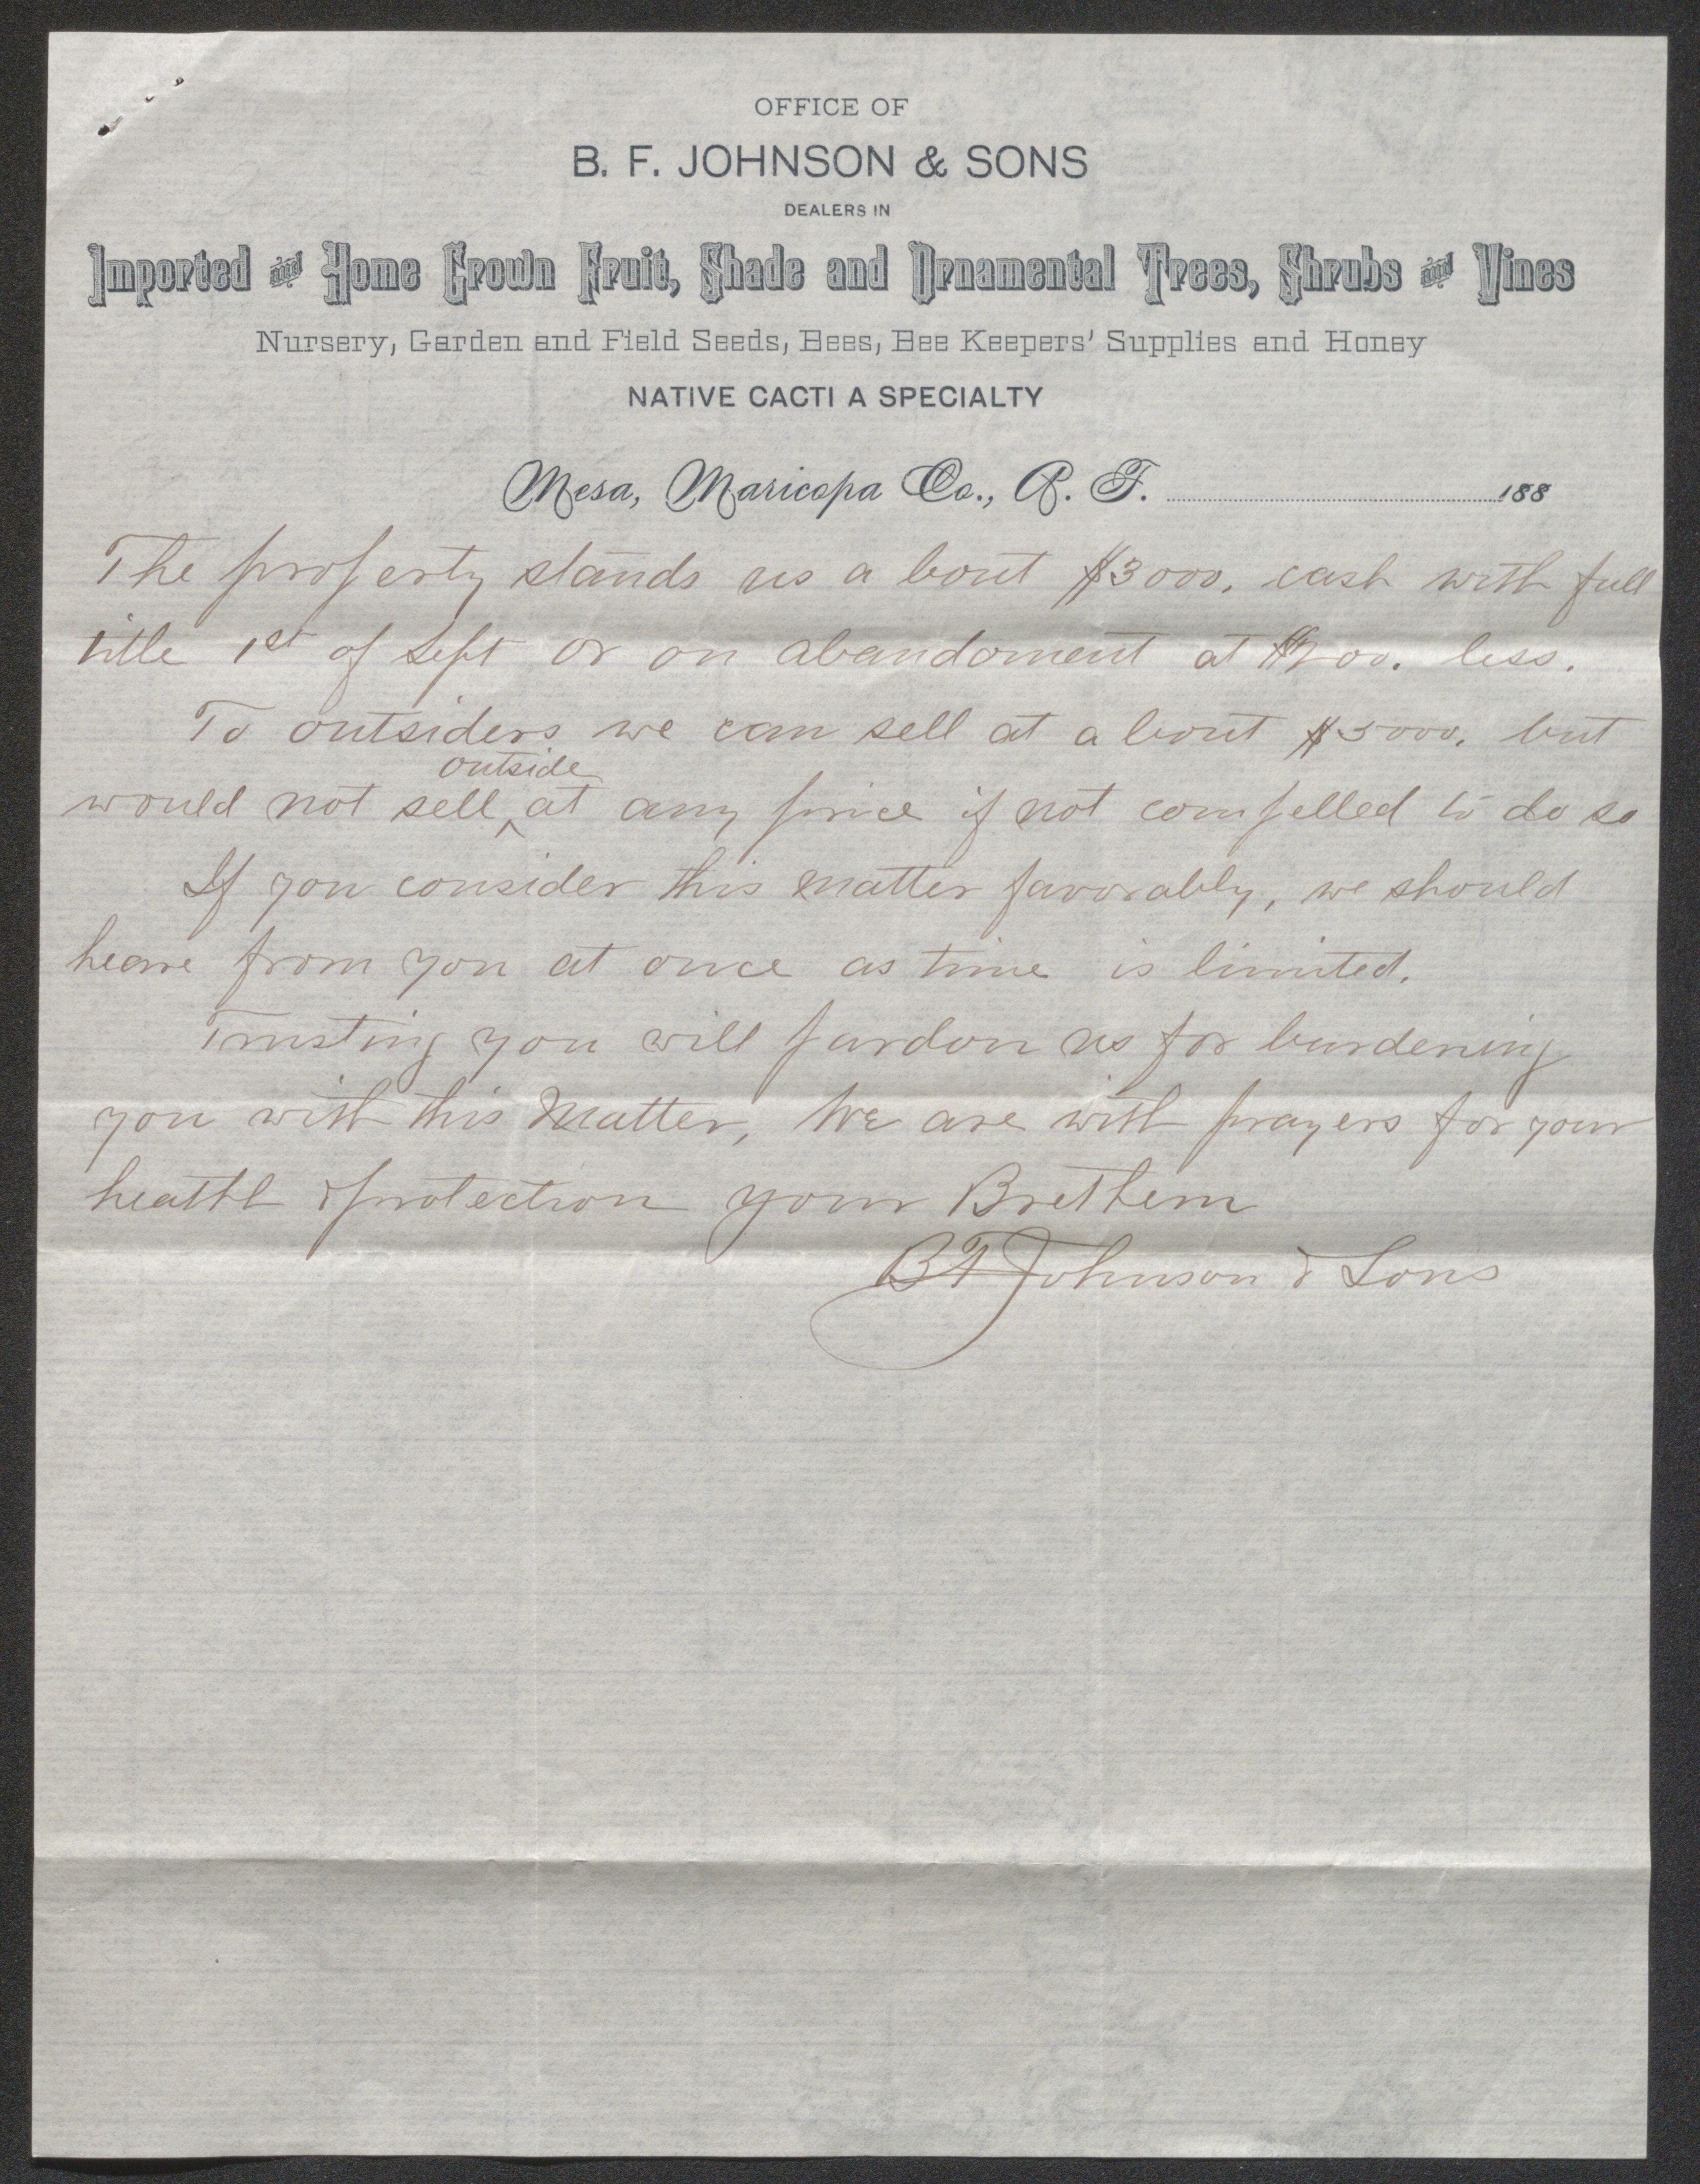 OFFICE OF
B. F. JOHNSON & SONS
DEALERS IN
Imported and Home Grown Fruit, Shade and Ornamental Trees, Shrubs and Vines
Nursery, Garden and Field Seeds, Bees, Bee Keepers' Supplies and Honey
NATIVE CACTI A SPECIALTY
Mesa, Maricopa Co., A. T. 188
The property stands us a bout $3000. cash with full
title 1st of Sept or on abandoment at less.
To outsiders we can sell at a bout $5000. but
outside
would not sell ^ at any price if not compelled to do so
If you consider this matter favorably, we should
heare from you at once as time is limited.
Trusting you will pardon us for burdening
you with this Matter, We are with prayers for your
heatth & protection your Brethern
BF Johnson & Sons